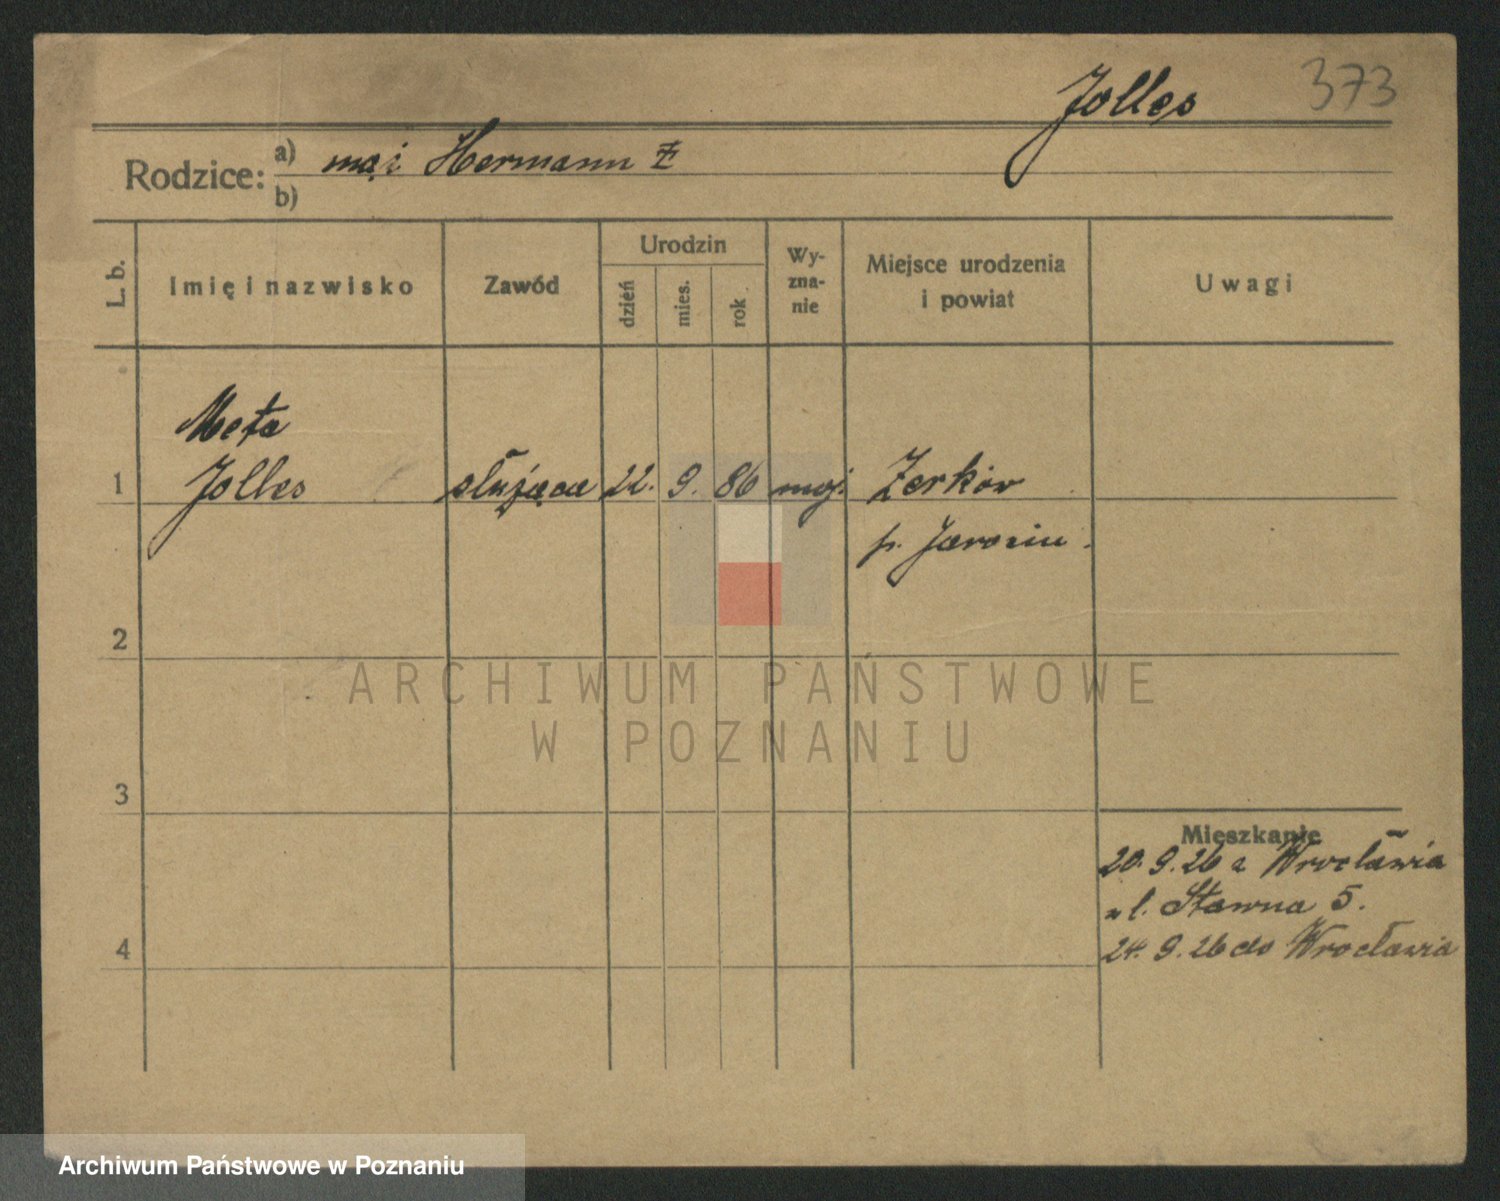 Jolles 373
Rodzice: a) mąż Hermann Ż
b)
L. b. Imię i nazwisko Zawód Urodzin dzień mies. rok Wy-zna-nie Miejsce urodzenia i powiat Uwagi
Meta
1 Jolles służąca 22. 9. 86 moj. Żerków
p. Jarocin.
2
ARCHIWUM PAŃSTWOWE
W POZNANIU
3
Mieszkanie
20. 9. 26 z Wrocławia
ul. Stawna 5.
4 24. 9. 26 do Wrocławia
Archiwum Państwowe w Poznaniu